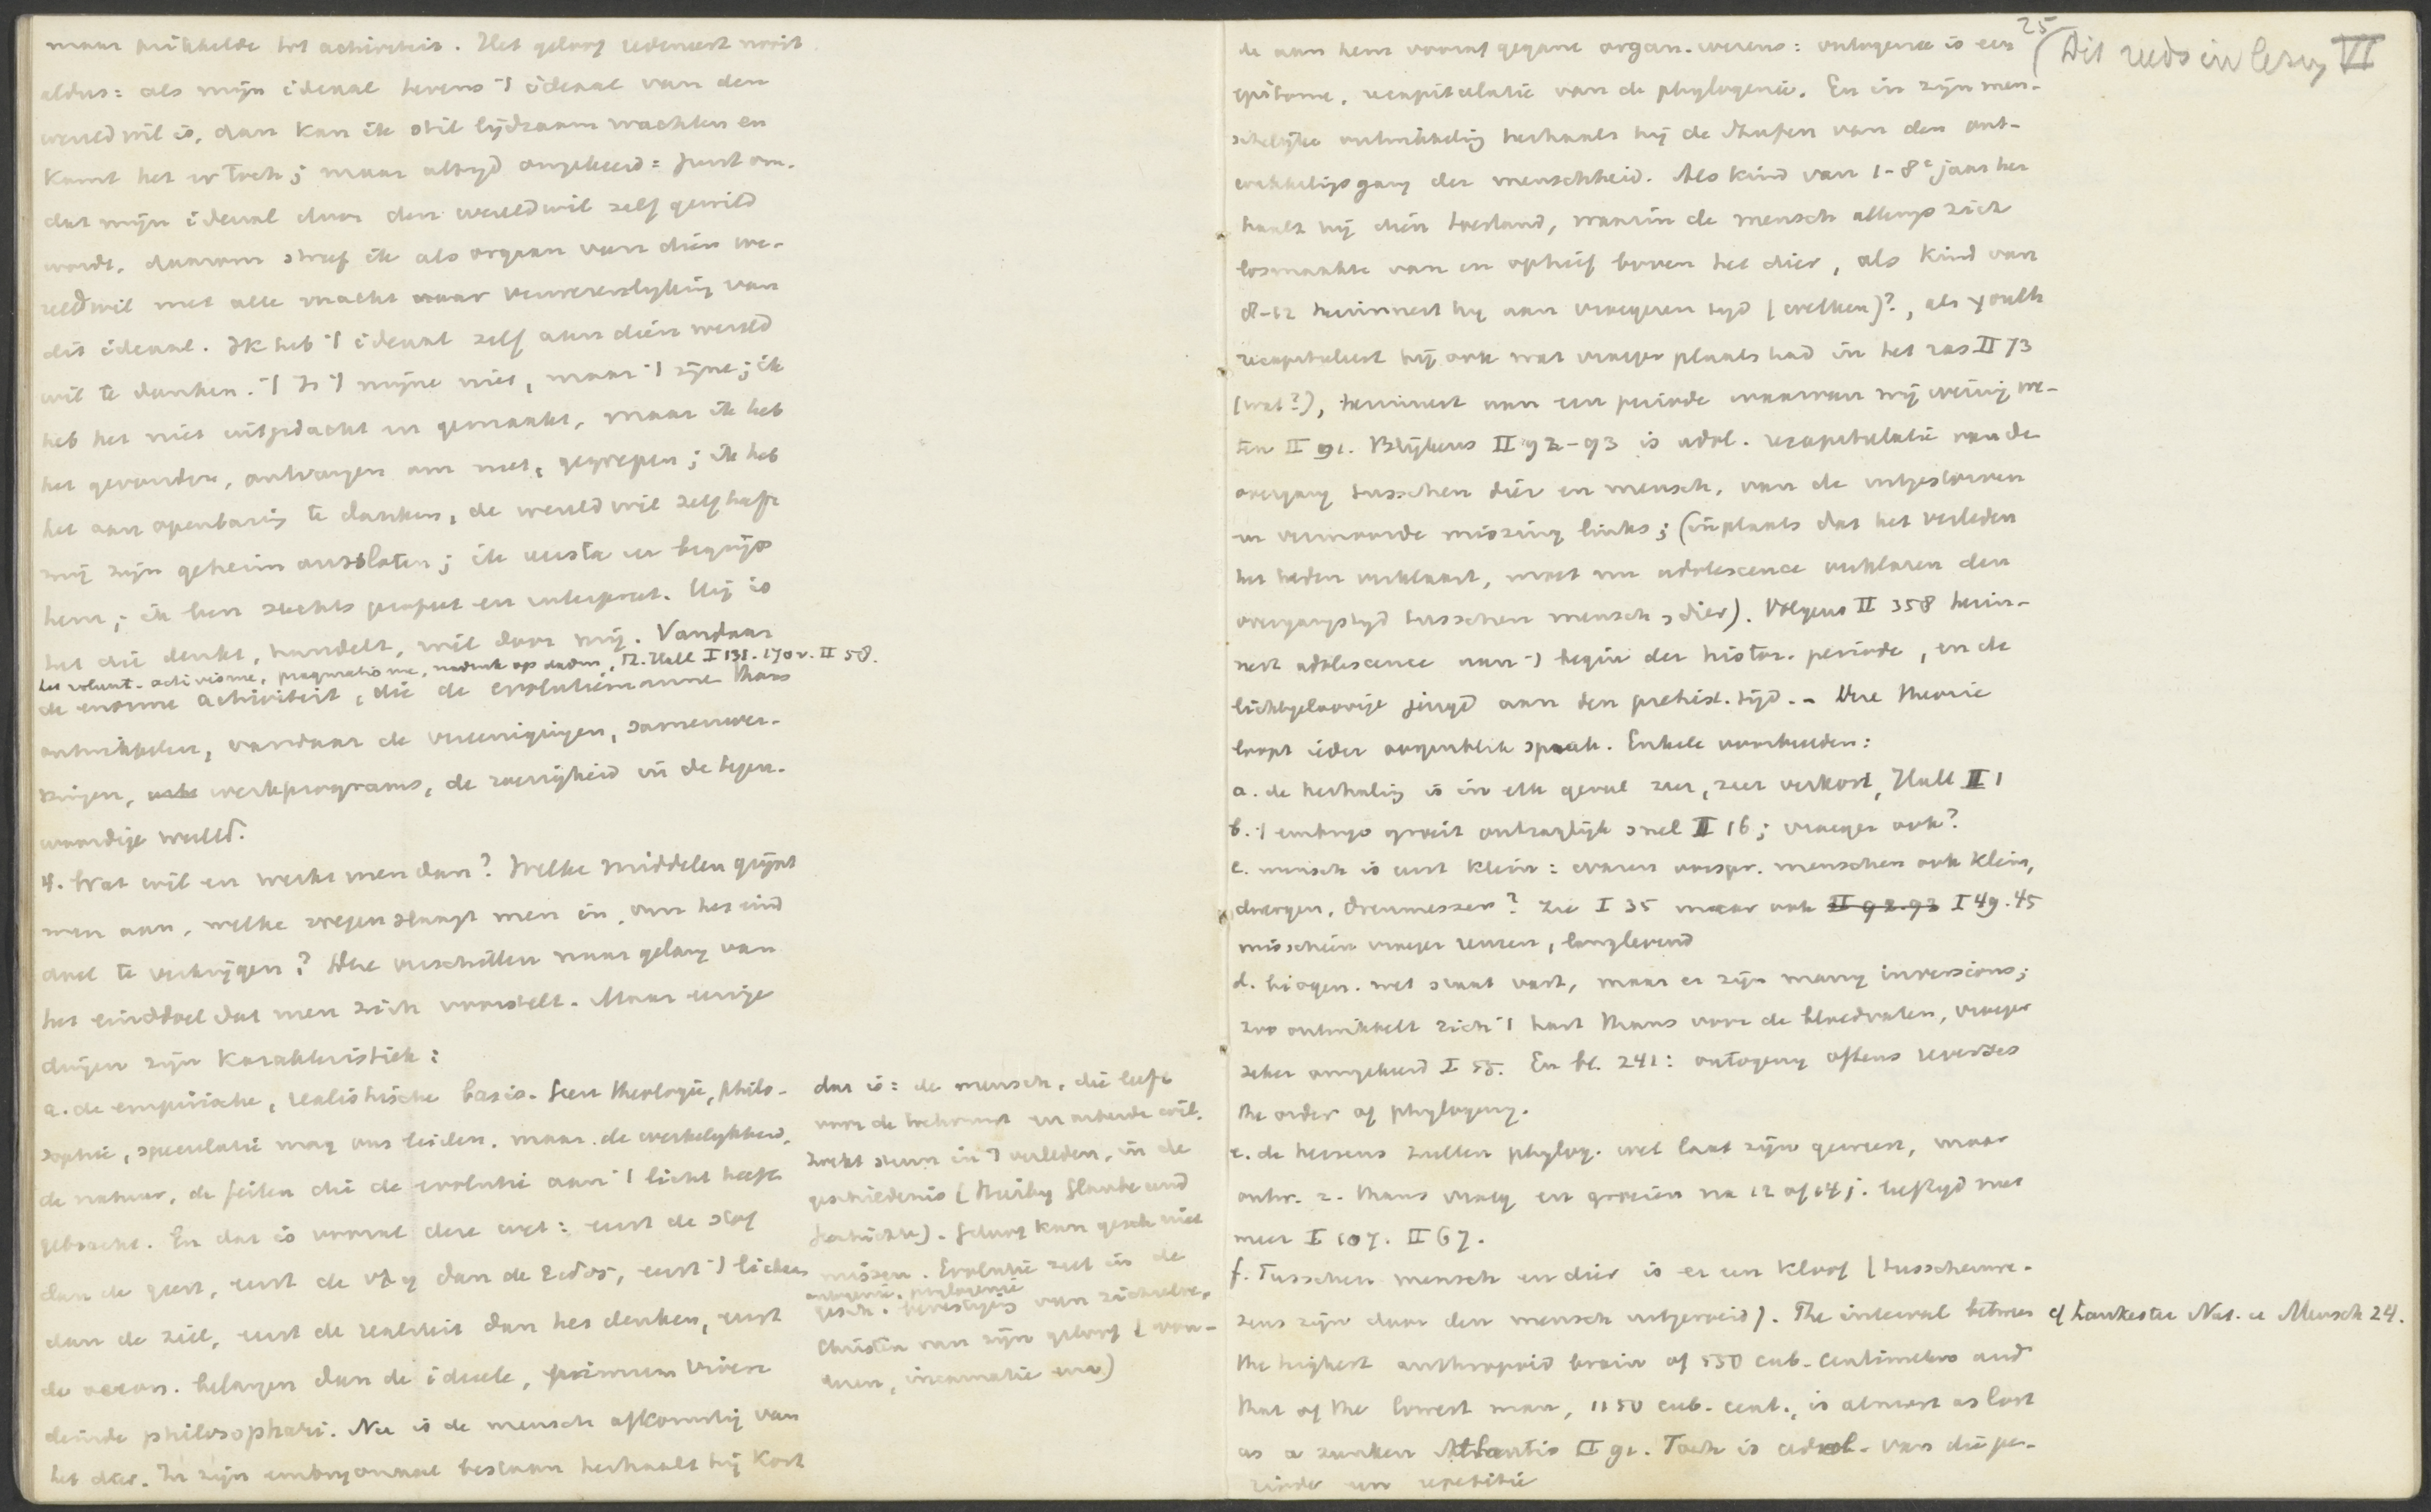 maar prikkelde tot activiteit. Het geloof redeneert nooit
aldus: als mijn ideaal tevens 't ideaal van den
wereldwil is, dan kan ik stil lijdzaam wachten en
komt het er toch; maar altijd omgekeerd: juist om-
dat mijn ideaal door den wereldwil zelf gewild
wordt, daarom streef ik als orgaan van dien we-
reldwil met alle macht naar verwezenlijking van
dit ideaal. Ik heb 't ideaal zelf aan dien wereld
wil te danken. 't Is 't mijne niet, maar 't zijne; ik
heb het niet uitgedacht en gemaakt, maar ik heb
het gevonden, ontvangen, gegrepen; ik heb
het aan openbaring te danken, de wereldwil zelf heeft
mij zijn geheim ontsloten; ik versta en begrijp
hem; ik ben slechts profeet en interpreet. Hij is
het die denkt, handelt, wil door mij. Vandaar
het volunt. activisme, pragmatisme, nadruk op daden, Hall I 131. 170v. II 58.
de enorme activiteit, die de evolutiemannen thans
ontwikkelen, vandaar de vereenigingen, samenwer-
kingen, werkprograms, de zoerigheid in de tegen-
woordige wereld.
4. Wat wil en werkt men dan? Welke middelen grijpt
men aan, welke wegen slaat men in, om het eind
doel te verkrijgen? Die verschillen naar gelang van
het einddoel dat men zich voorstelt. Maar eenige
dingen zijn karakteristiek:
a. de empirische, realistische basis. Geen theologie, philo-
sophie, speculatie mag ons leiden, maar de werkelijkheid,
de natuur, de feiten die de evolutie aan 't licht heeft
gebracht. En dat is vooral deze wet: eerst de stof
dan de geest, eerst de ὕλη dan de εἶδος, eerst 't lichaam
dan de ziel, eerst de realiteit dan het denken, eerst
de oecon. belangen dan de ideeele, primum vivere
deinde philosophari. Nu is de mensch afkomstig van
het dier. In zijn embryonaal bestaan herhaalt hij kort
dat is: de mensch, die leeft
voor de toekomst en arbeiden wil,
zoekt steun in 't verleden, in de
geschiedenis (Glaube und
Geschichte). Geloof kan gesch. niet
missen. Evolutie ziet in de
ontogenie, phylogenie
gesch. bevestiging van zichzelve,
Christen van zijn geloof (
, incarnatie enz.)
25
(Dit reeds in lezing VI
de aan hem vooraf gegane organ. wezens: ontogenie is een
epitome, recapitulatie van de phylogenie. En in zijn men-
schelijke ontwikkeling herhaalt hij de stufen van den ont-
wikkelingsgang der menschheid. Als kind van 1-8e jaar her
haalt hij dien toestand, waarin de mensch allengs zich
losmaakte van en ophief boven het dier, als kind van
8-12 herinnert hij aan vroegeren tijd (welken)?, als youth
recapituleert hij ook wat vroeger plaats had in het ras II 73
(wat?), herinnert aan een periode waarvan wij weinig we-
ten II 91. Blijkens II 92-93 is adol. recapitulatie van de
overgang tusschen dier en mensch, van de uitgestorven
en vermoorde missing links; (in plaats dat het verleden
het heden verklaart, moet nu adolescence verklaren den
overgangstijd tusschen mensch en dier). Volgens II 358 herin-
nert adolescence aan 't begin der histor. periode, en de
lichtgeloovige jeugd aan den prehist. tijd. - Deze theorie
loopt ieder oogenblik spaak. Enkele voorbeelden:
a. de herhaling is in elk geval zeer, zeer verkort, Hall II 1
b. 't embryo groeit ontzaglijk snel II 16; vroeger ook?
c. mensch is eerst klein: waren oorspr. menschen ook klein,
dwergen, dreumessen? Zie I 35 maar ook II 92.93 I 49.45
misschien vroeger reuzen, langlevend
d. biogen. wet staat vast, maar er zijn many inversions;
zoo ontwikkelt zich 't hart thans voor de bloedvaten, vroeger
zeker omgekeerd I 55. En bl. 241: ontogeny oftens reverses
the order of phylogeny.
e. de hersens zullen phylog. wel laat zijn geweest, maar
ontw. z. thans vroeg en groeien na 12 of 14 j. leeftijd niet
meer I 107. II 67.
f. Tusschen mensch en dier is er een kloof (tusschenwe-
zens zijn door den mensch uitgeroeid). The interval between
cf Lankester Nat. u Mensch 24.
the highest anthropoid brain of 550 cub. centimetres and
that of the lowest man, 1150 cub. cent., is almost as lost
as a sunken Atlantis II 91. Toch is adol. van die pe-
riode een repetitie